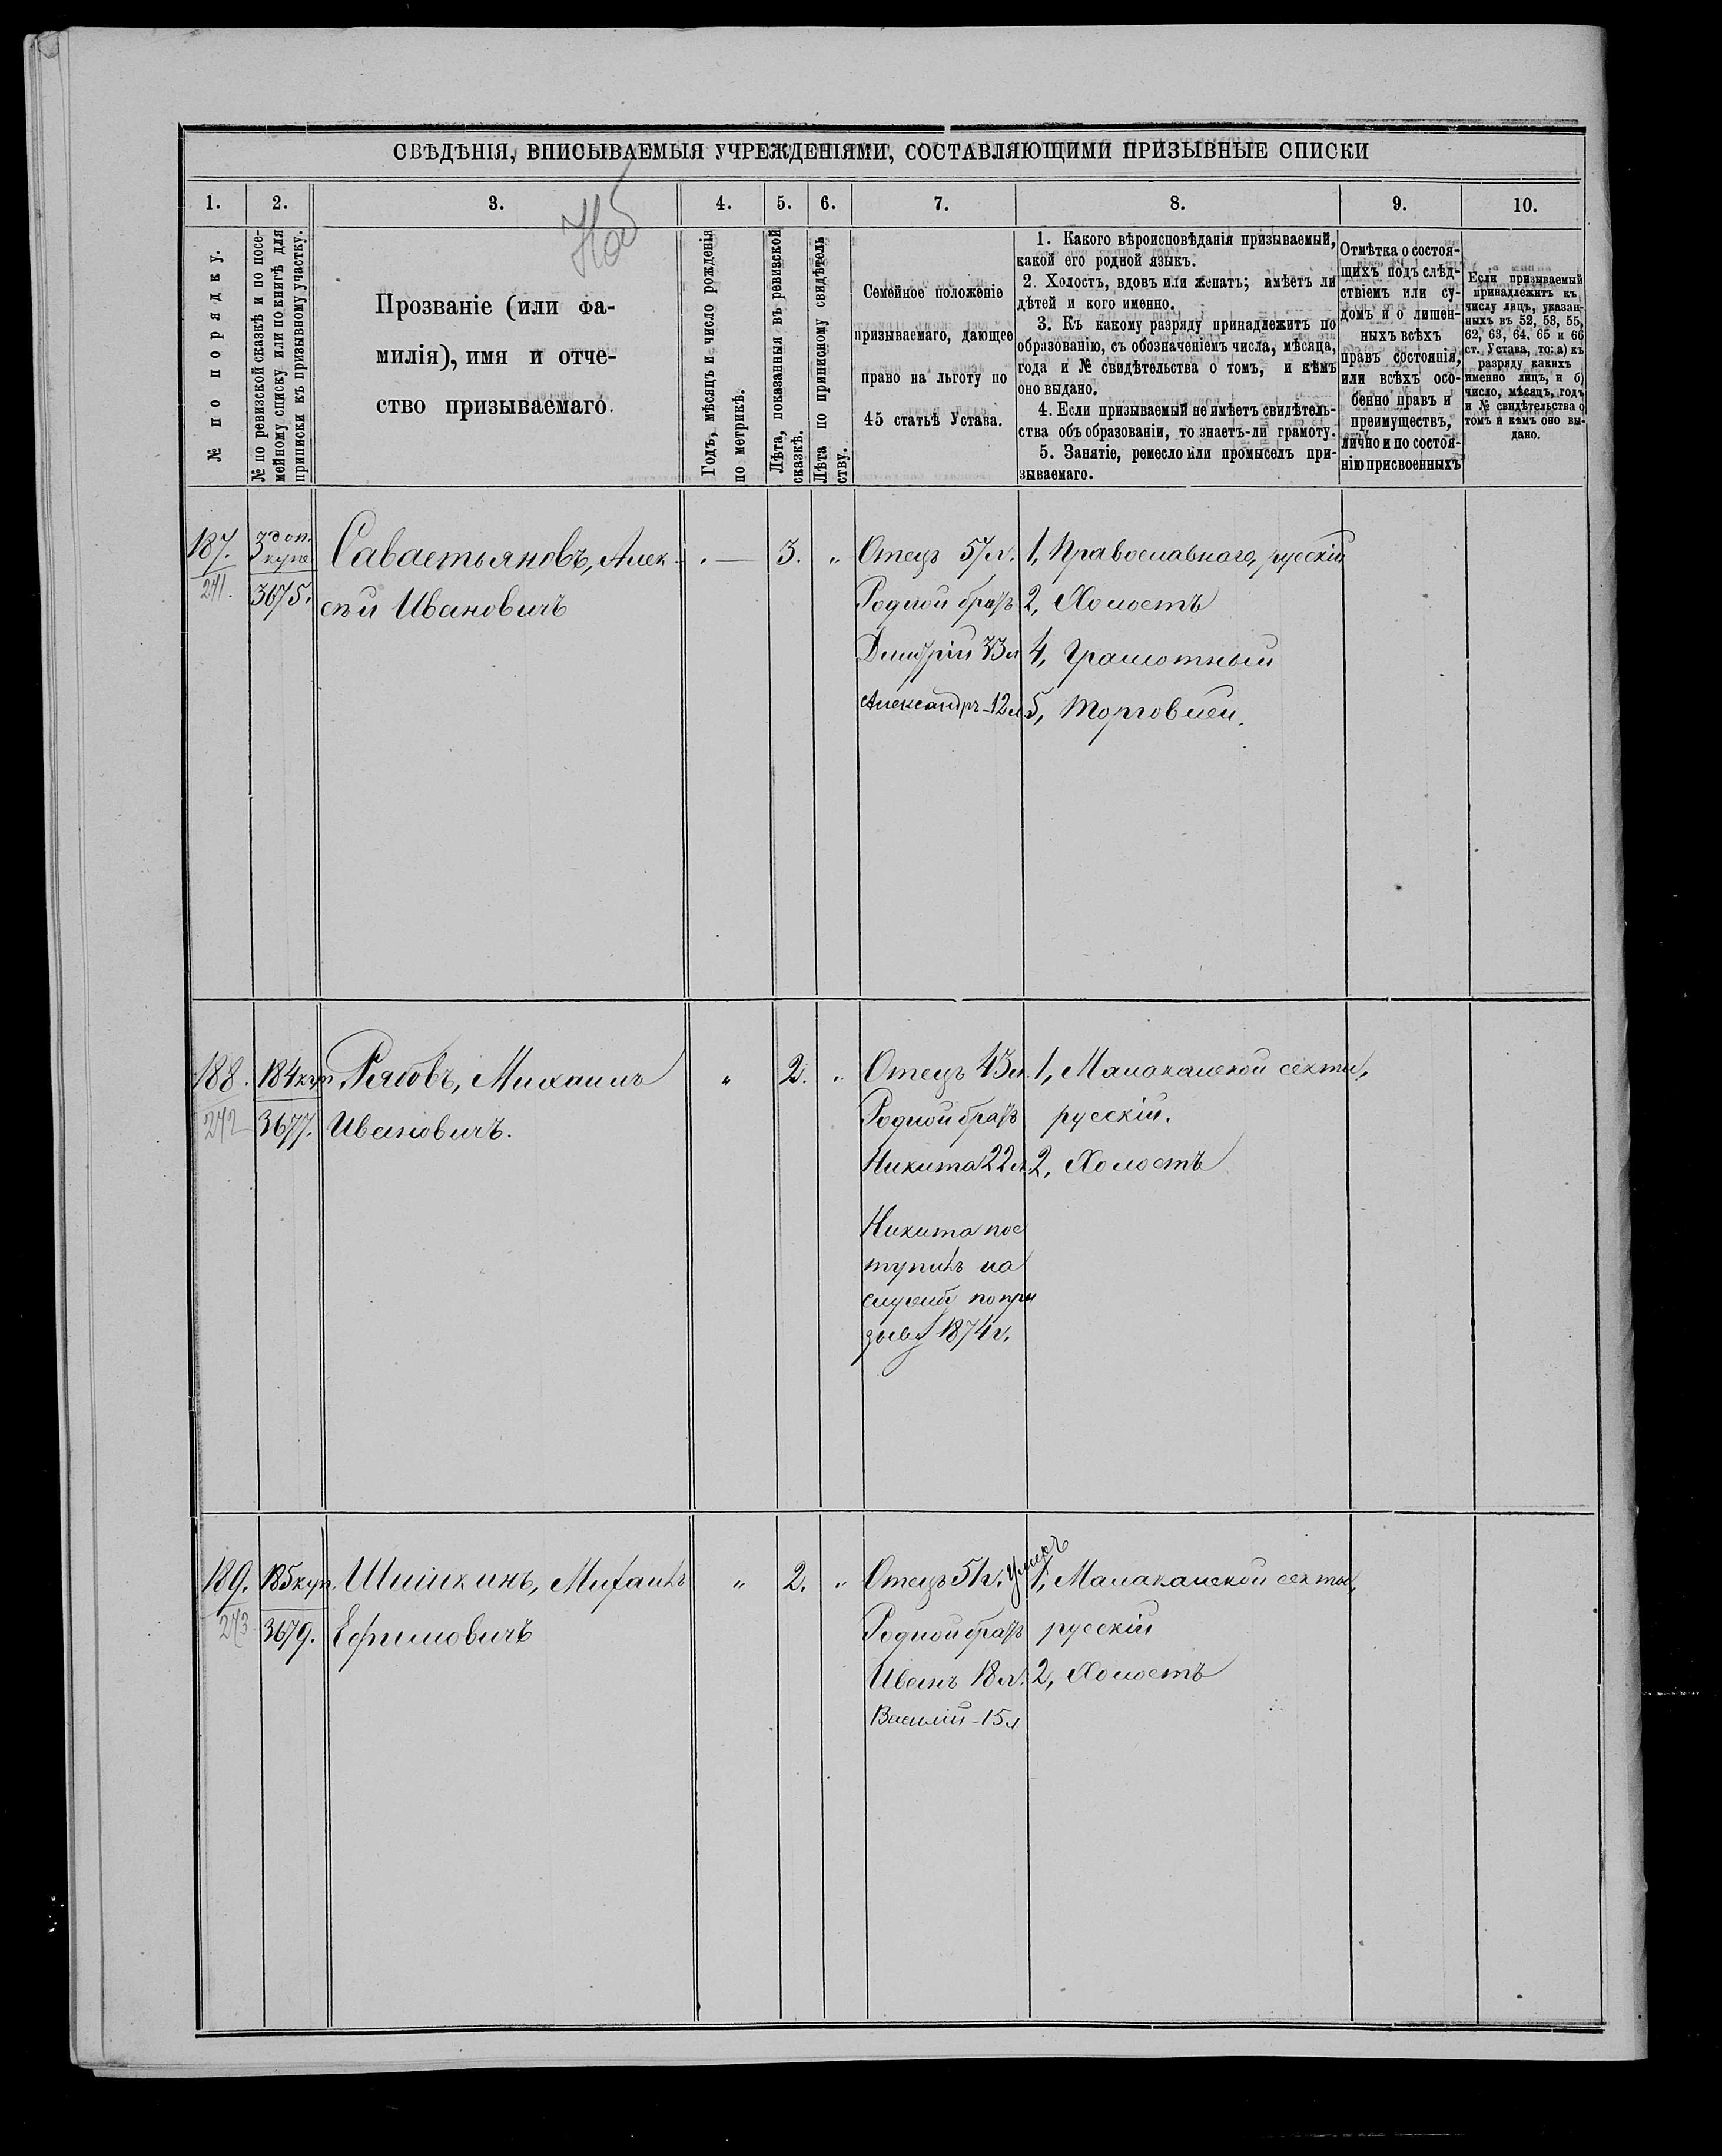 СВѢДѢНІЯ, ВПИСЫВАЕМЫЯ УЧРЕЖДЕНІЯМИ, СОСТАВЛЯЮЩИМИ ПРИЗЫВНЫЕ СПИСКИ
1. 2. 3. 4. 5. 6. 7. 8. 9. 10.
№ по порядку.
№ по ревизской сказкѣ и по посе-
мейному списку или по книгѣ для
приписки къ призывному участку.
Прозваніе (или фа-
милія), имя и отче-
ство призываемаго.
Годъ, мѣсяцъ и число рожденія
по метрикѣ.
Лѣта, показанныя въ ревизской
сказкѣ.
Лѣта по приписному свидѣтель
ству.
Семейное положеніе
призываемаго, дающее
право на льготу по
45 статьѣ Устава.
1. Какого вѣроисповѣданія призываемый,
какой его родной языкъ.
2 Холостъ, вдовъ или женатъ; имѣетъ ли
дѣтей и кого именно.
3. Къ какому разряду принадлежитъ по
образованію, съ обозначеніемъ числа, мѣсяца,
года и № свидѣтельства о томъ, и кѣмъ
оно выдано.
4. Если призываемый не имѣетъ свидѣтель-
ства объ образованіи, то знаетъ-ли грамоту.
5. Занятіе, ремесло или промыселъ при-
зываемаго.
Отмѣтка о состоя-
щихъ подъ слѣд-
ствіемъ или су-
домъ и о лишен-
ныхъ всѣхъ
правъ состоянія,
или всѣхъ осо-
бенно правъ и
преимуществъ,
лично и по состоя-
нію присвоенныхъ
Если призываемый
принадлежитъ къ
числу лицъ, указан-
ныхъ въ 52, 53, 55,
62, 63, 64, 65 и 66
ст. Устава, то: а) къ
разряду какихъ
именно лицъ, и б)
число, мѣсяцъ, годъ
и № свидѣтельства о
томъ и кѣмъ оно вы-
дано.
187.
241.
3 доп.
купе.
3675.
Савастьяновъ, Алек-
сѣй Ивановичъ
3.
Отецъ 57 л.
Родной братъ
Дмитрій 33 л
Александръ - 12 л
1, Православнаго, русскій
2, Холостъ
4, Грамотный
5, Торговлей.
188.
242
184 куп
3677.
Рябовъ, Михаилъ
Ивановичъ.
2.
Отецъ 43 л.
Родной братъ
Никита 22 л.
Никита пос
тупилъ на
службу по при
зыву 1874 г.
1, Малаканской секты,
русскій.
2, Холостъ
189.
243
185 куп.
3679.
Шишкинъ, Михаилъ
Ефимовичъ
2.
Отецъ 51 г. Умеръ
Родной братъ
Иванъ 18 л.
Василій - 15 л
1, Малаканской секты,
русскій
2, Холостъ